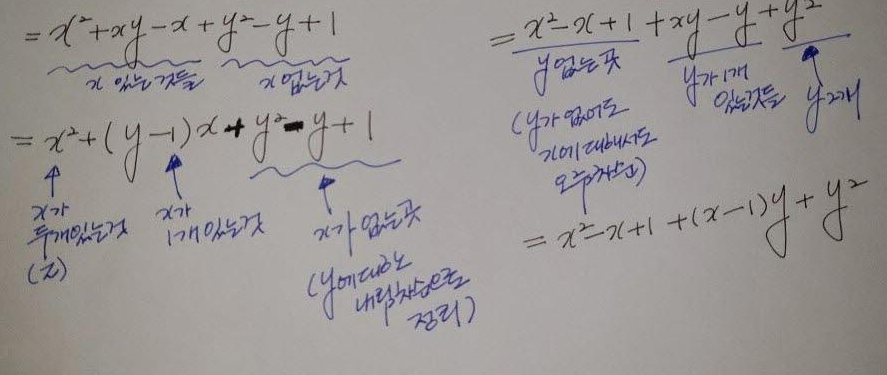 = x²+xy-x+y²-y+1
x 있는것들
x 없는것
= x²+(y-1)x+y²-y+1
x가
두개있는것
(z)
x가
1개있는것
x가 없는곳
(y에대하는
내림차순으로
정리)
= x²-x+1+xy-y+y²
y없는곳
y가1개
있는것들
y2개
(y가없어도
x에대해서도
오름차순)
= x²-x+1+(x-1)y+y²